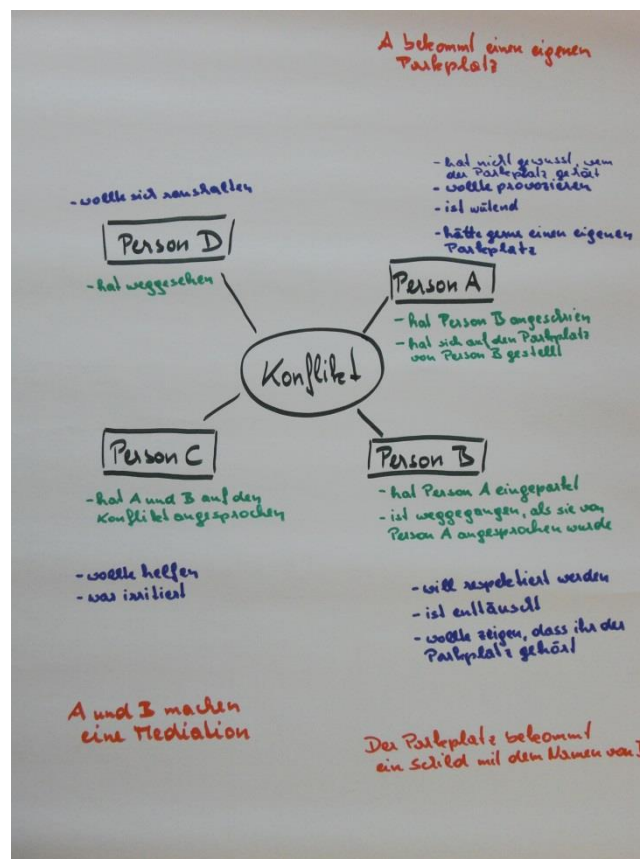 A bekommt einen eigenen
Parkplatz
- hat nicht gewusst, wem
der Parkplatz gehört
- wollte provozieren
- ist wütend
- hätte gerne einen eigenen
Parkplatz
- wollte sich raushalten
Person D
- hat weggesehen
Person A
- hat Person B angeschrien
- hat sich auf den Parkplatz
von Person B gestellt
Konflikt
Person C
- hat A und B auf den
Konflikt angesprochen
- wollte helfen
- war irritiert
Person B
- hat Person A eingeparkt
- ist weggegangen, als sie von
Person A angesprochen wurde
- will respektiert werden
- ist enttäuscht
- wollte zeigen, dass ihr der
Parkplatz gehört
A und B machen
eine Mediation
Der Parkplatz bekommt
ein Schild mit dem Namen von